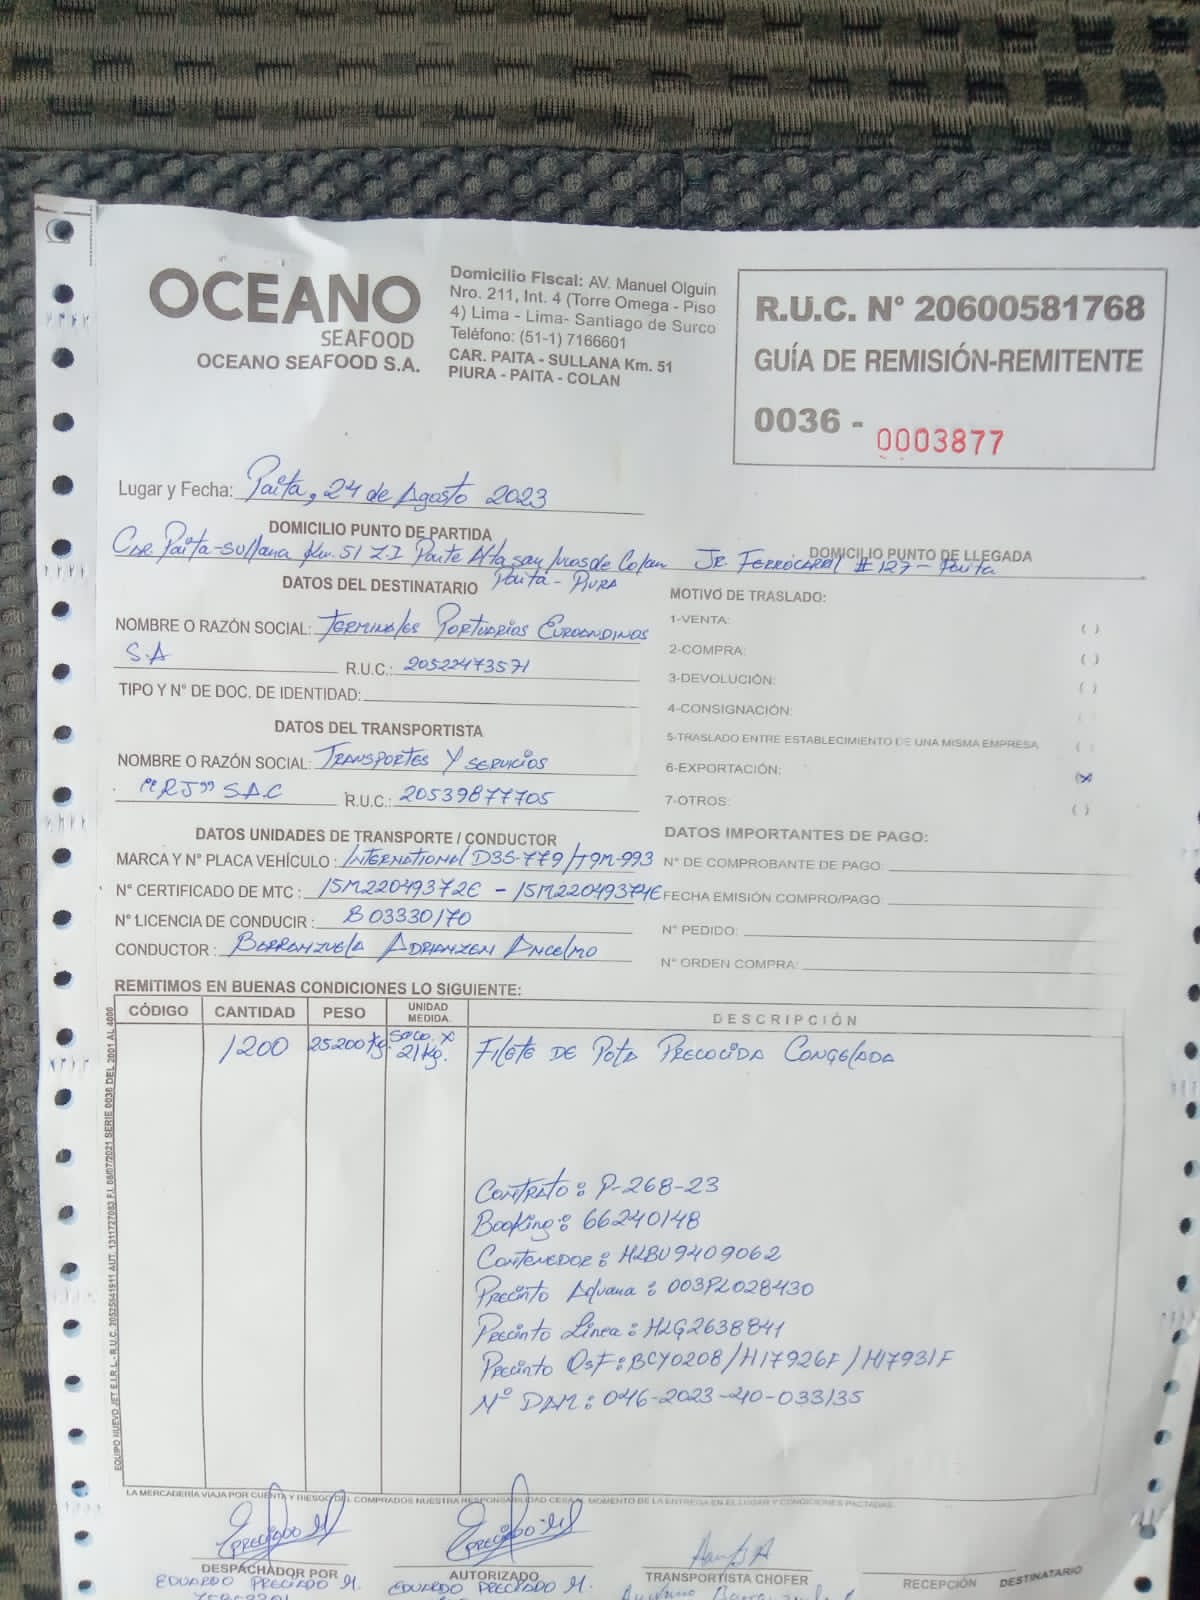 OCEANO
SEAFOOD
OCEANO SEAFOOD S.A.
Domicilio Fiscal: AV. Manuel Olguin
Nro. 211, Int. 4 (Torre Omega - Piso
4) Lima - Lima- Santiago de Surco
Teléfono: (51-1) 7166601
CAR. PAITA - SULLANA Km. 51
PIURA - PAITA - COLAN
R.U.C. N° 20600581768
GUÍA DE REMISIÓN-REMITENTE
0036 - 0003877
Lugar y Fecha: Paita, 24 de Agosto 2023
DOMICILIO PUNTO DE PARTIDA
Car. Paita-Sullana Km. 51 Z.I Parte Alta san Lucas de Colan
Paita - Piura
DOMICILIO PUNTO DE LLEGADA
Jr. Ferrocarril # 127 - Paita
DATOS DEL DESTINATARIO
NOMBRE O RAZÓN SOCIAL: Terminales Portuarios Euroandinos
S.A R.U.C.: 20522473571
TIPO Y N° DE DOC. DE IDENTIDAD:
DATOS DEL TRANSPORTISTA
NOMBRE O RAZÓN SOCIAL: Transportes y servicios
"RJ" S.A.C R.U.C.: 20539877705
MOTIVO DE TRASLADO:
1-VENTA: ( )
2-COMPRA: ( )
3-DEVOLUCIÓN: ( )
4-CONSIGNACIÓN: ( )
5-TRASLADO ENTRE ESTABLECIMIENTO DE UNA MISMA EMPRESA ( )
6-EXPORTACIÓN: (x)
7-OTROS: ( )
DATOS UNIDADES DE TRANSPORTE / CONDUCTOR
MARCA Y N° PLACA VEHÍCULO: International D3S-779/T9M-993
N° CERTIFICADO DE MTC: 15M22049372E - 15M22049374E
N° LICENCIA DE CONDUCIR: B03330170
CONDUCTOR: Barranzuela Adrianzen Ancelmo
DATOS IMPORTANTES DE PAGO:
N° DE COMPROBANTE DE PAGO:
FECHA EMISIÓN COMPRO/PAGO:
N° PEDIDO:
N° ORDEN COMPRA:
REMITIMOS EN BUENAS CONDICIONES LO SIGUIENTE:
CÓDIGO CANTIDAD PESO UNIDAD MEDIDA. DESCRIPCIÓN
1200 25200 Kg. Saco x 21Kg. Filete de Pota Precocida Congelada
Contrato: P-268-23
Booking: 66240148
Contenedor: HLBU9409062
Precinto Aduana: 003PL028430
Precinto Linea: HLG2638841
Precinto Osf: BCY0208/H17926F/H17931F
N° DAM: 046-2023-40-033135
EQUIPO NUEVO JET E.I.R.L.- R.U.C. 20525841911 AUT. 1311727083 F.I. 08/07/2021 SERIE 0036 DEL 2001 AL 4000
LA MERCADERÍA VIAJA POR CUENTA Y RIESGO DEL COMPRADOS NUESTRA RESPONSABILIDAD CESA AL MOMENTO DE LA ENTREGA EN EL LUGAR Y CONDICIONES PACTADAS.
DESPACHADOR POR AUTORIZADO TRANSPORTISTA CHOFER RECEPCIÓN DESTINATARIO
Eduardo Preciado M. Eduardo Preciado M.